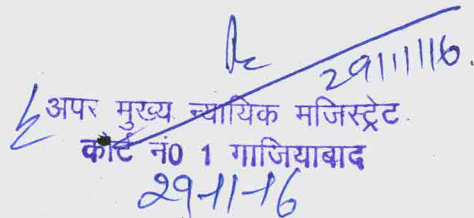 29/11/16.
अपर मुख्य न्यायिक मजिस्ट्रेट
कोर्ट नं0 1 गाजियाबाद
29-11-16